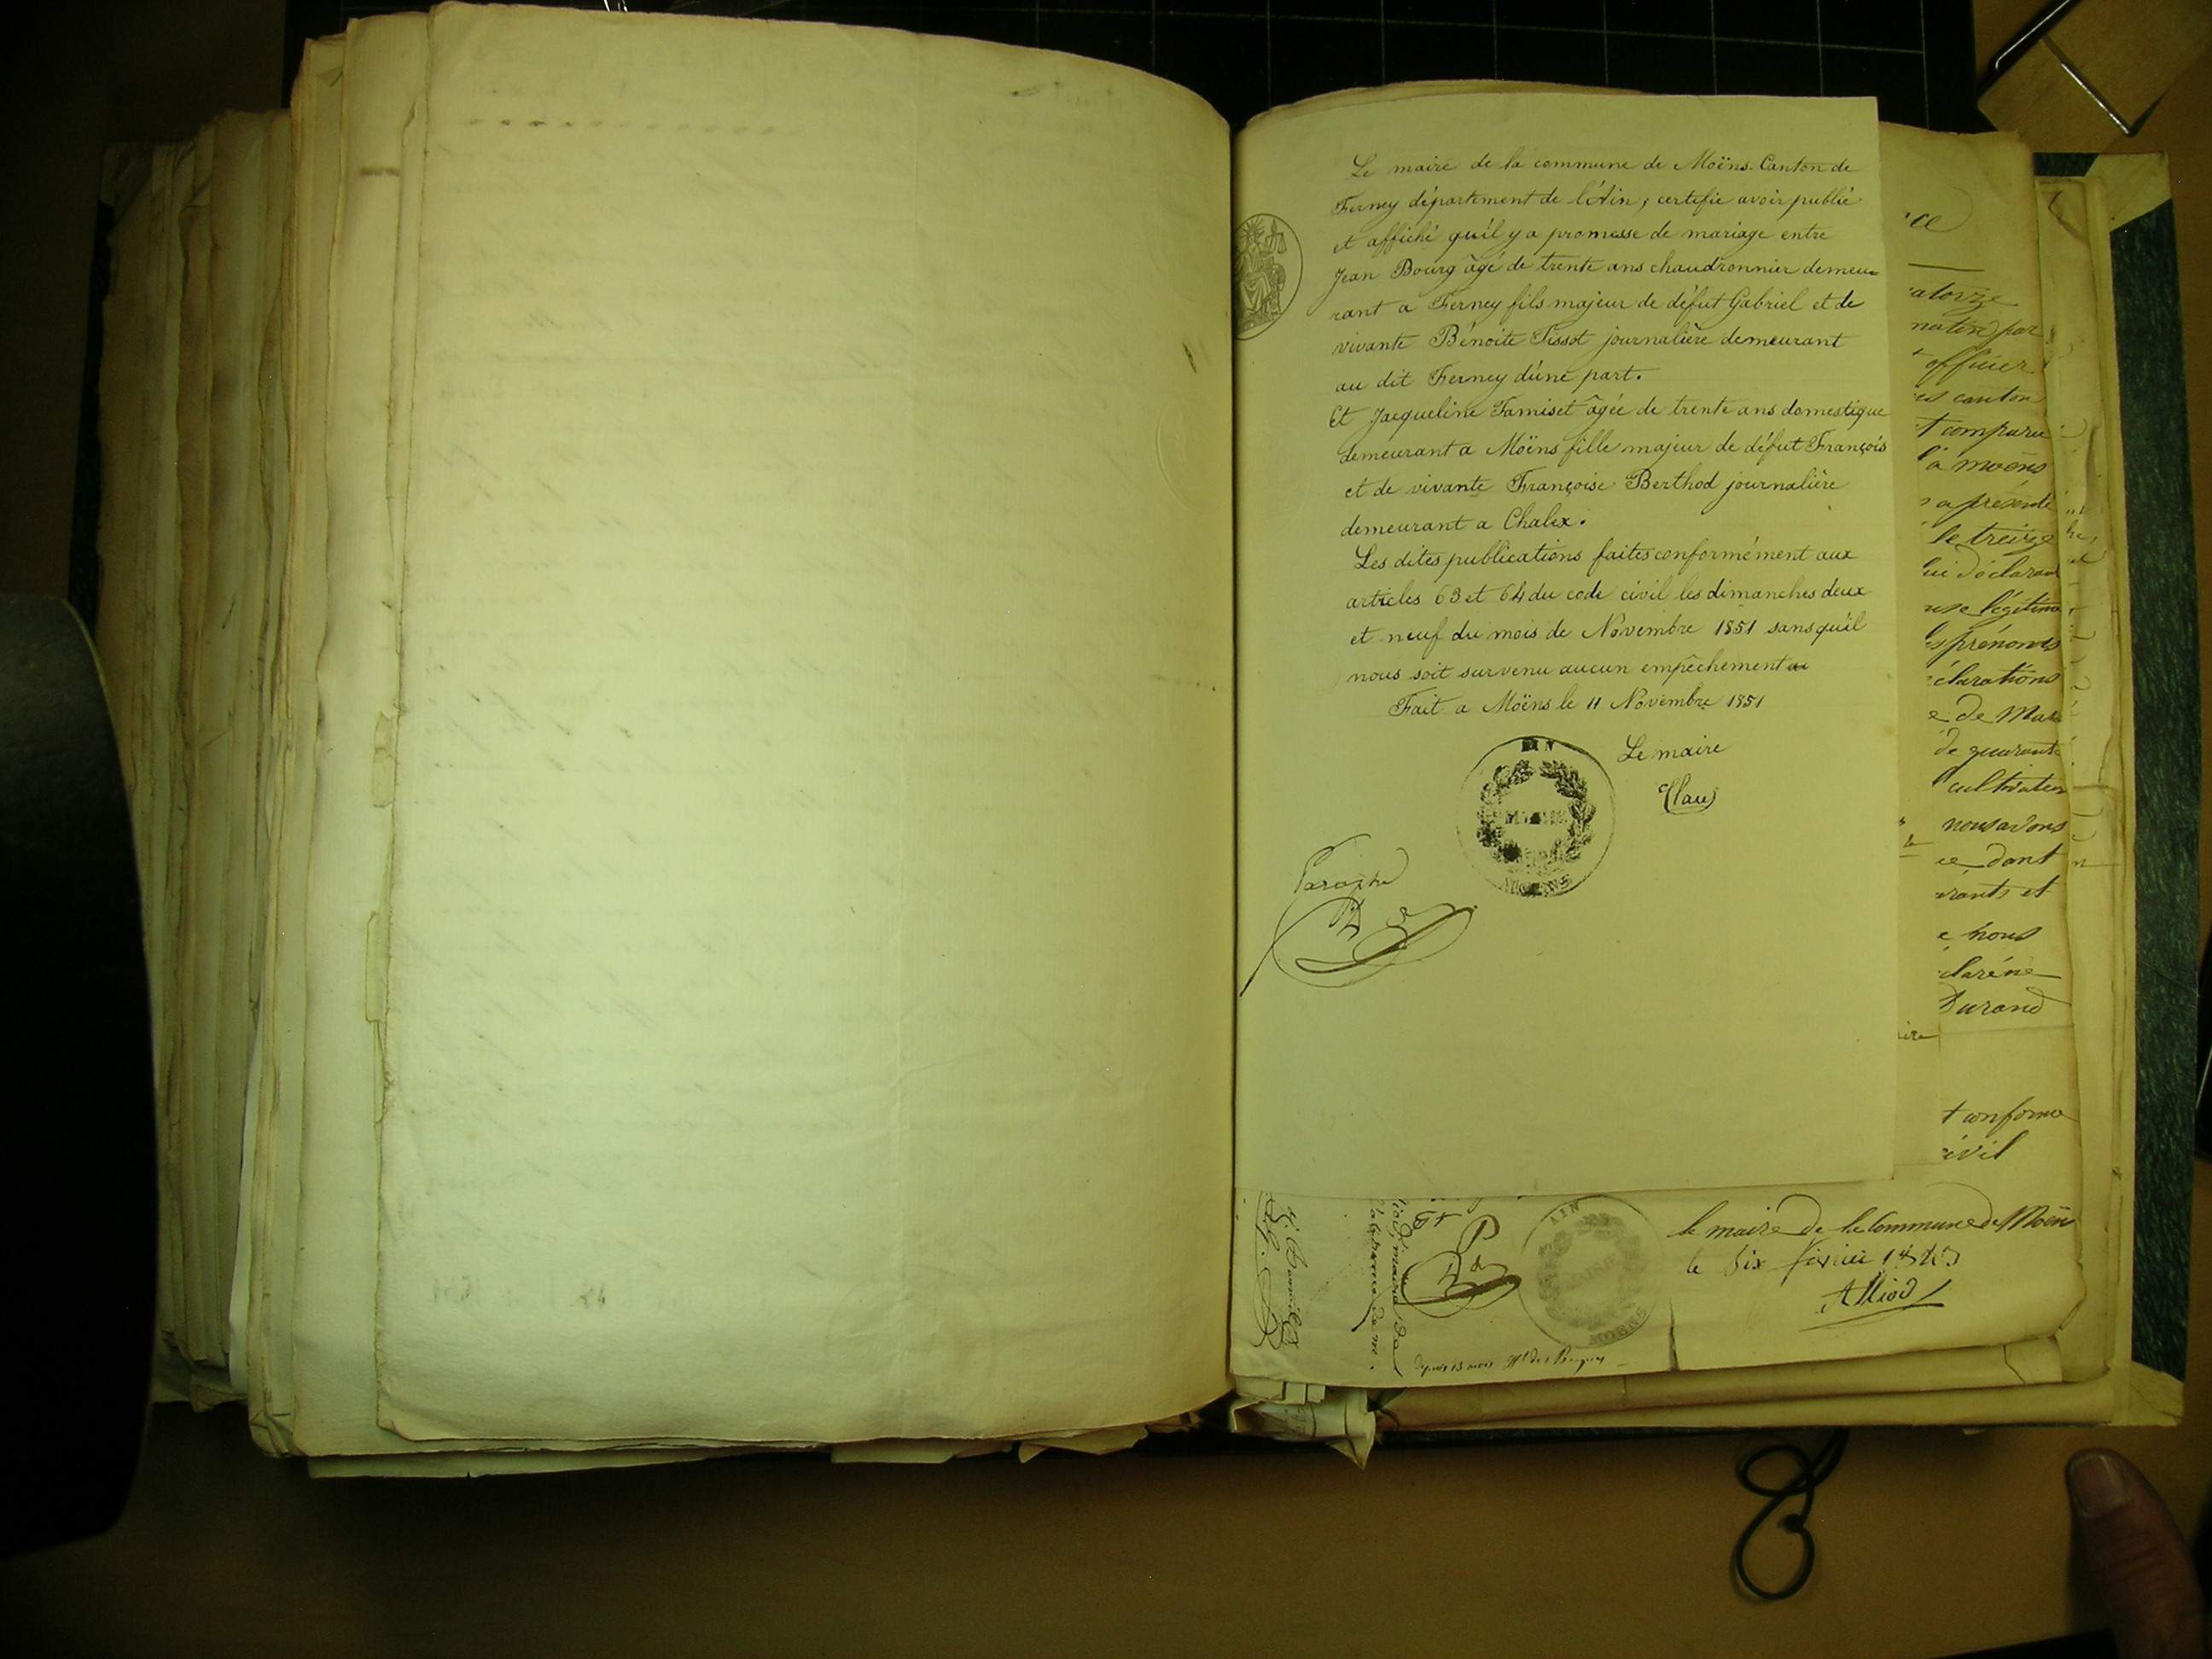 Le maire de la commune de Moëns. Canton de
Ferney département de l'Ain; certifie avoir publié
et affiché qu'il y a promesse de mariage entre
Jean Bourg âgé de trente ans chaudronnier demeu=
rant a Ferney fils majeur de défut Gabriel et de
vivante Bénoite Tissot journalière demeurant
au dit Ferney d'une part.
Et Jacqueline Tamiset âgée de trente ans domestique
demeurant a Moëns fille majeur de défut François
et de vivante Françoise Berthod journalière
demeurant a Chalex.
Les dites publications faites conformément aux
articles 63 et 64 du code civil les dimanches deux
et neuf du mois de Novembre 1851 sans qu'il
nous soit survenu aucun empêchement
Fait a Moëns le 11 Novembre 1851
Le maire
AIN
MOENS
Paraphé
ce
atorze
officier
canton
t comparu
à moëns
a présenté
le treize
lui déclarant
légitime
prénoms
éclarations
e de Mar
de quarante
cultivateur
nous avons
ce dont
et
e nous
Durand
t conforme
ivil
le maire de la Commune de Moën
le six février 1843
Alliod
AIN
MAIRIE
MOENS